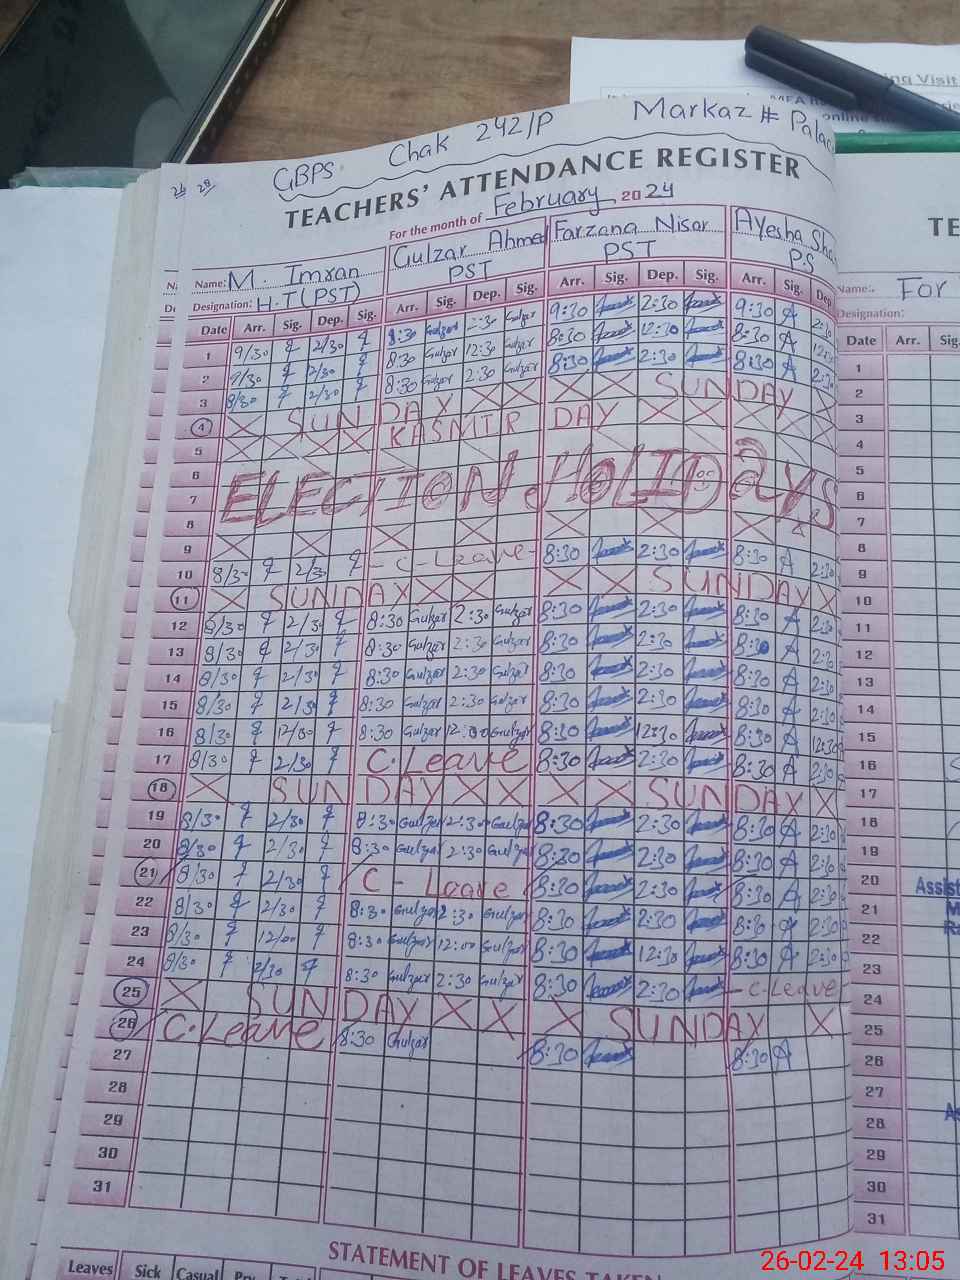 ing Visit
GBPS. Chak 242/P Markaz #
TEACHERS' ATTENDANCE REGISTER
For the month of February 2024
Name: M. Imran Gulzar Ahmed Farzana Nisar Ayesha
Designation: H.T (PST) PST PST PS
Date Arr. Sig. Dep. Sig. Arr. Sig. Dep. Sig. Arr. Sig. Dep. Sig. Arr. Sig. Dep.
1 9/30 2/30 8:30 Gulzar 2:30 Gulzar 9:30 2:30 9:30 A
2 2/30 8:30 Gulzar 12:30 Gulzar 8:30 12:30 8:30 A
3 8/30 2/30 8:30 Gulzar 2:30 Gulzar 8:30 2:30 8:30 A
4 X SUNDAY X X X X SUNDAY X
5 X X X X KASMIR DAY X X X X
6
7 ELECTION HOLIDAYS
8
9 X X X X X X X
10 8/30 2/30 - C-Leave- 8:30 2:30 8:30 A 2:30
11 X SUNDAY X X X X SUNDAY X
12 8/30 2/30 8:30 Gulzar 2:30 Gulzar 8:30 2:30 8:30 A 2:30
13 8/30 2/30 8:30 Gulzar 2:30 Gulzar 8:30 2:30 8:30 A 2:30
14 8/30 2/30 8:30 Gulzar 2:30 Gulzar 8:30 2:30 8:30 A 2:30
15 8/30 2/30 8:30 Gulzar 2:30 Gulzar 8:30 2:30 8:30 A 2:30
16 8/30 12/00 8:30 Gulzar 12:00 Gulzar 8:30 12:30 8:30 A 12:30
17 8/30 2/30 C.Leave 8:30 2:30 8:30 A 2:30
18 X SUNDAY X X X X SUNDAY X
19 8/30 2/30 8:30 Gulzar 2:30 Gulzar 8:30 2:30 8:30 A 2:30
20 8/30 2/30 8:30 Gulzar 2:30 Gulzar 8:30 2:30 8:30 A 2:30
21 8/30 2/30 C - Leave 8:30 2:30 8:30 A 2:30
22 8/30 2/30 8:30 Gulzar 2:30 Gulzar 8:30 2:30 8:30 A 2:30
23 8/30 12/00 8:30 Gulzar 12:00 Gulzar 8:30 12:30 8:30 A
24 8/30 2/30 8:30 Gulzar 2:30 Gulzar 8:30 2:30 - C-Leave-
25 X SUNDAY X X X SUNDAY X
26 C.Leave 8:30 Gulzar 8:30 8:30 A
27
28
29
30
31
STATEMENT OF LEAVES TAKEN
Leaves Sick Casual
TE
Name:. For
Designation:
Date Arr. Sig.
1
2
3
4
5
6
7
8
9
10
11
12
13
14
15
16
17
18
19
20
Assist
21
22
23
24
25
26
27
28
29
30
31
26-02-24 13:05